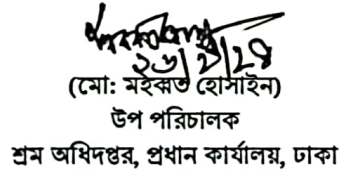 ২৬/২/২৪
(মো: মহব্বত হোসাইন)
উপ পরিচালক
শ্রম অধিদপ্তর, প্রধান কার্যালয়, ঢাকা